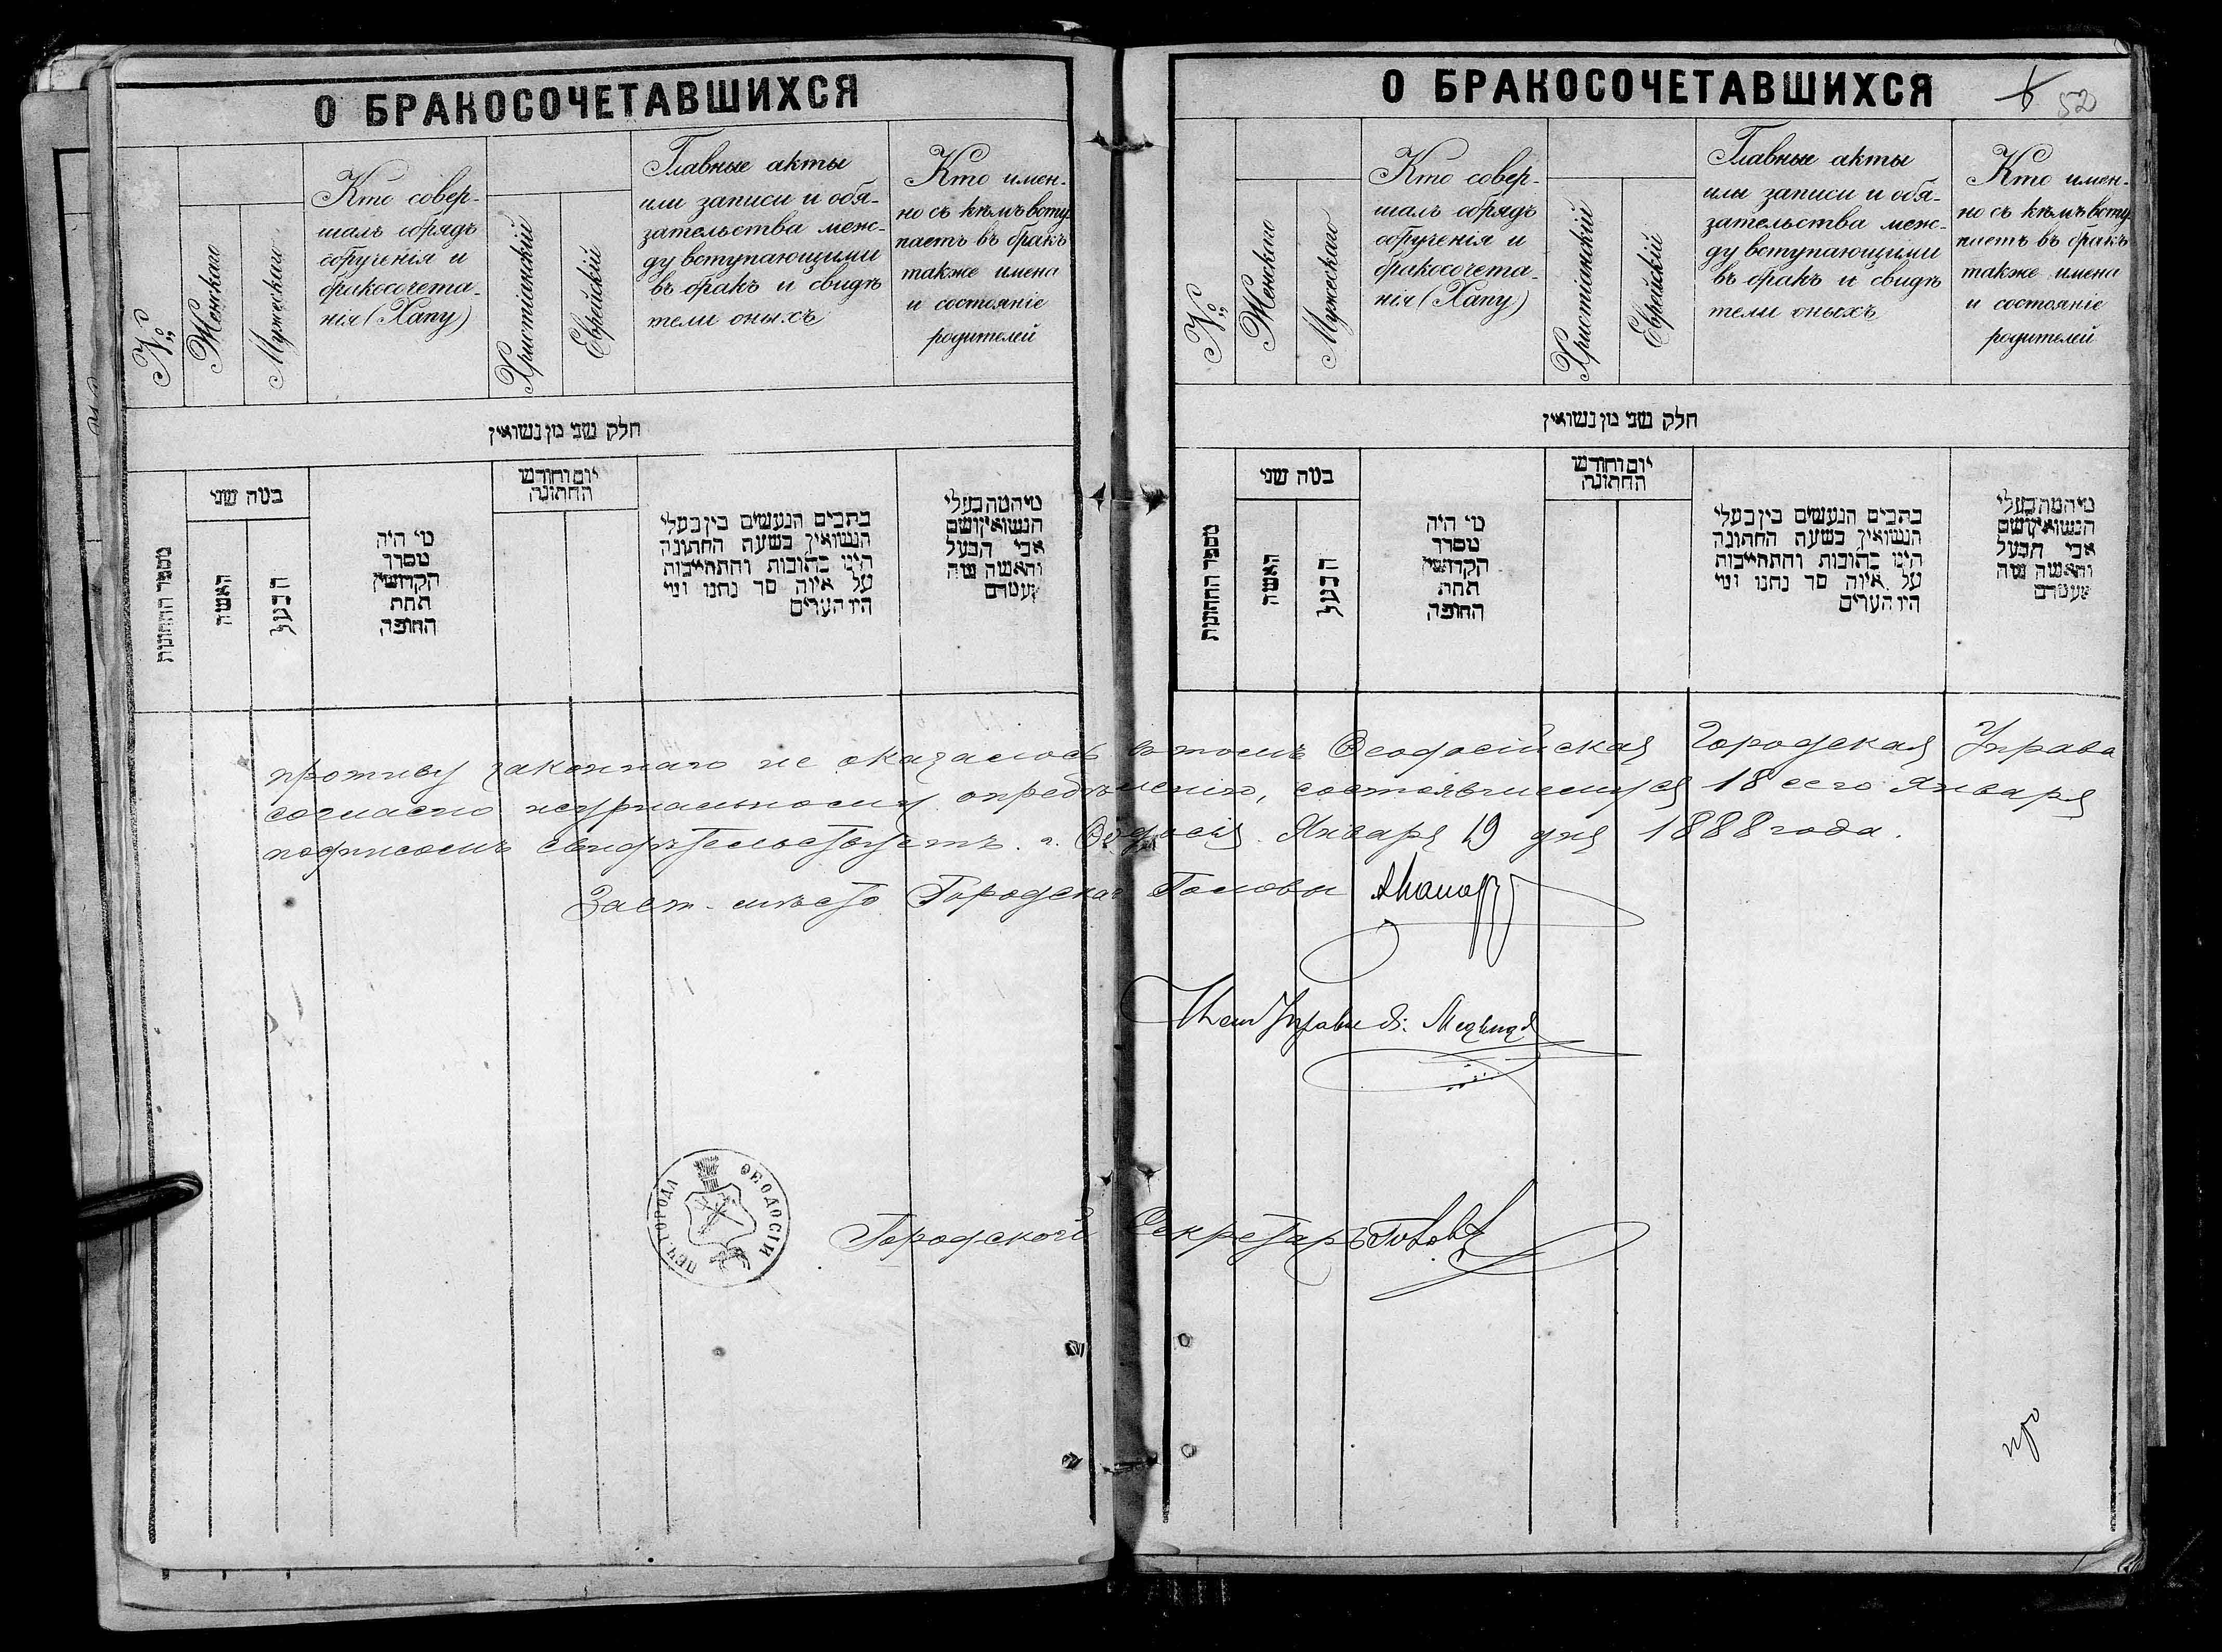 О БРАКОСОЧЕТАВШИХСЯ
№
Женскаго
Мужескаго
Кто совер-
шалъ обрядъ
обрученія и
бракосочета-
нія (Хапу)
Христіанскій
Еврейскій
Главные акты
или записи и обя-
зательства меж-
ду вступающими
въ бракъ и свидѣ
тели оныхъ
Кто имен-
но съ кѣмъ всту
паетъ въ бракъ
также имена
и состояніе
родителей
חלק שני מן נשואין
מספר החתונות
במה שני
האשה
הבעל
מי היה
מסדר
הקדושין
תחת
החופה
יום וחודש
החתונה
כתבים הנעשים בין בעלי
הנשואין בשעת החתונה
היינו כתובות והתחייבות
על איזה סך נתנו ומי
היו העדים
מי המה בעלי
הנשואין ושם
אבי הבעל
והאשה
О БРАКОСОЧЕТАВШИХСЯ
52
№
Женскаго
Мужескаго
Кто совер-
шалъ обрядъ
обрученія и
бракосочета-
нія (Хапу)
Христіанскій
Еврейскій
Главные акты
или записи и обя-
зательства меж-
ду вступающими
въ бракъ и свидѣ
тели оныхъ
Кто имен-
но съ кѣмъ всту
паетъ въ бракъ
также имена
и состояніе
родителей
חלק שני מן נשואין
מספר החתונות
במה שני
האשה
הבעל
מי היה
מסדר
הקדושין
תחת
החופה
יום וחודש
החתונה
כתבים הנעשים בין בעלי
הנשואין בשעת החתונה
היינו כתובות והתחייבות
על איזה סך נתנו ומי
היו העדים
מי המה בעלי
הנשואין ושם
אבי הבעל
והאשה
противу законнаго не оказалось въ томъ Ѳеодосійская Городская Управа
согласно журнальному опредѣленію, состоявшемуся 18 сего Января
подписомъ свидѣтельствуетъ. г. Ѳеодосія. Января 19 дня 1888 года.
Заст. мѣсто Городскаго Головы
Членъ Управы
ПЕЧ. ГОРОДА ѲЕОДОСІИ
Городской Секретарь